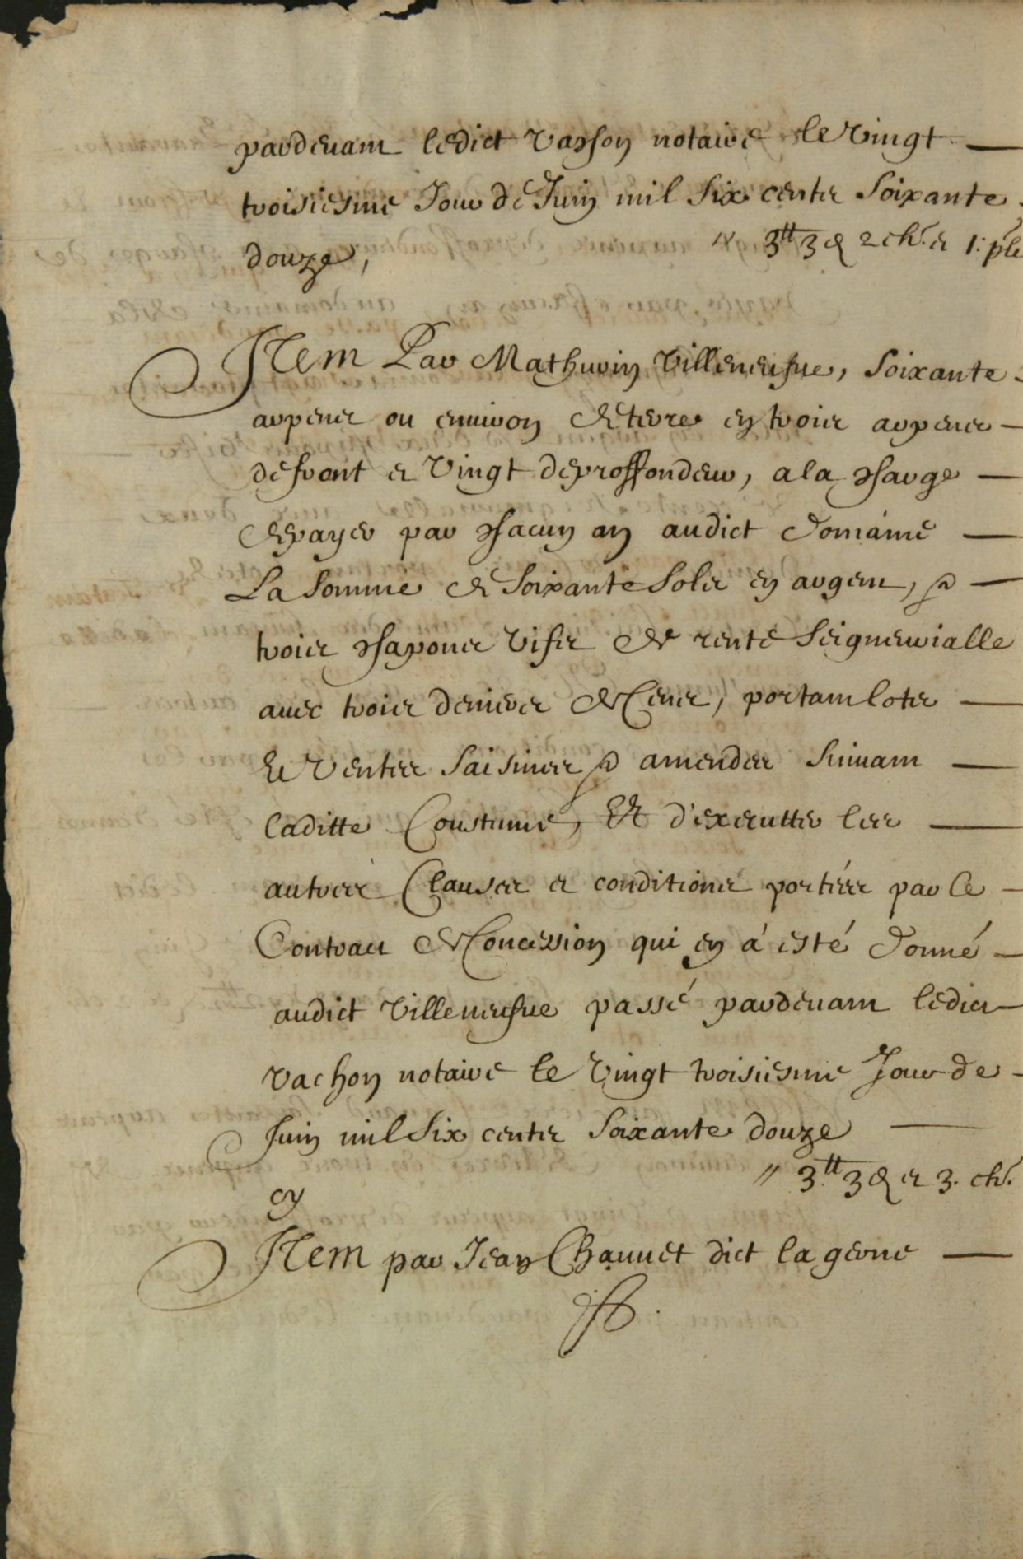 pardevant ledict Vachon notaire le Vingt
troisiesme Jour de Juin mil six cents soixante
douze,
3tt 3d 2 ch. et 1. ple
Item Par Mathurin Villeneufve, soixante
arpens ou environ de terre en trois arpens
de front et Vingt de proffondeur, a la charge
de payer par chacun an audict Domaine
La somme de soixante sols en argent, et
trois chapons vifs de rente seigneurialle
avec trois deniers de Cens, portant lots
Et Ventes saisines et amendes suivant
laditte Coustume, Et d'executter les
autres Clauses et conditions portées par le
Contract de Concession qui en a esté donné
audict Villeneufve passé pardevant ledict
Vachon notaire le Vingt troisiesme Jour de
Juin mil six cents soixante douze
3tt 3d et 3. ch.
cy
Item par Jean Chauvet dict lagerne